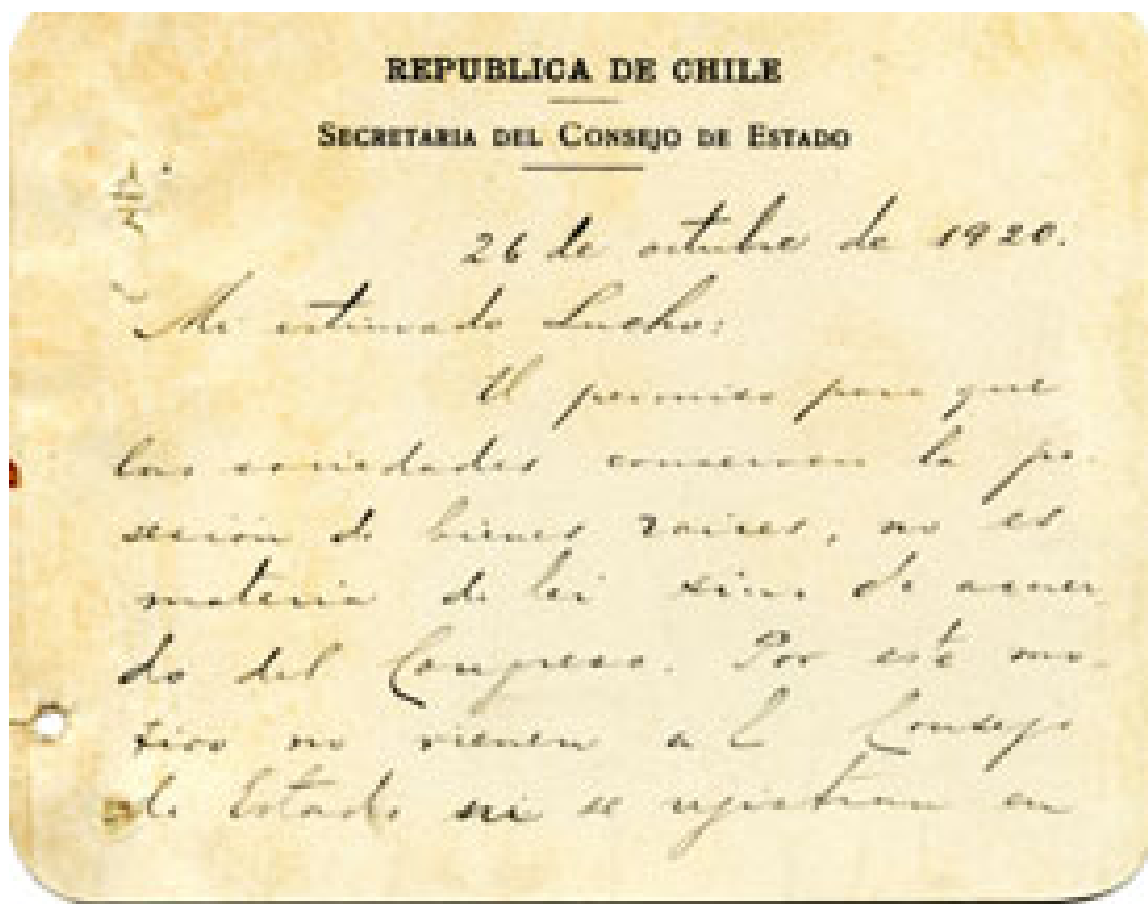 REPUBLICA DE CHILE
SECRETARIA DEL CONSEJO DE ESTADO
26 de octubre de 1920.
Mi estimado Lucho:
El permiso para que
las sociedades conserven la po-
sesion de bienes raices, no es
materia de lei sino de acuer-
do del Congreso. Por este mo-
tivo no vienen al Consejo
de Estado ni se rejistran en